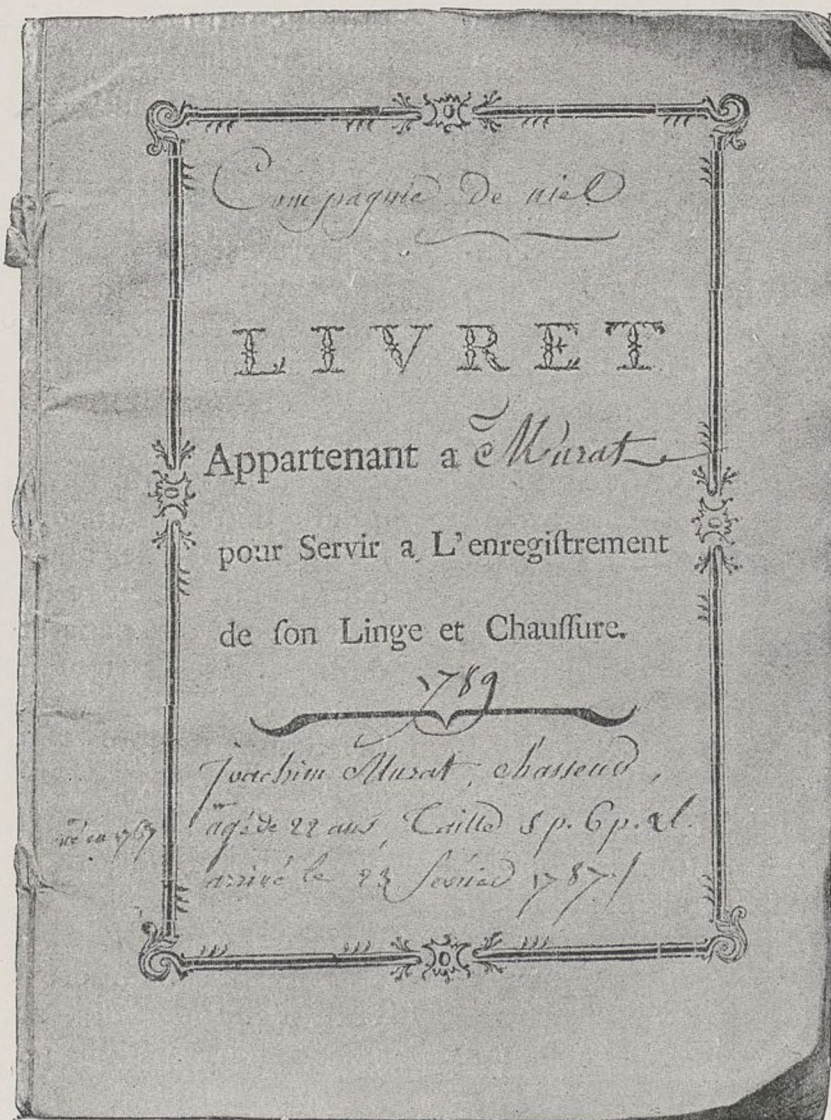 Compagnie De niel
LIVRET
Appartenant a Murat
pour Servir a L'enregiſtrement
de ſon Linge et Chauſſure.
1789
Joachim Murat, chasseur,
né en 1767
agé de 22 ans, Taille 5 p. 6 p. 2 l.
arrivé le 23 fevrier 1787./